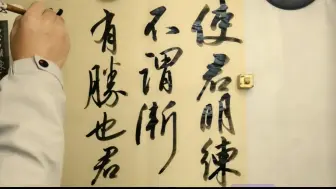 使君明練
不謂漸
有勝也君